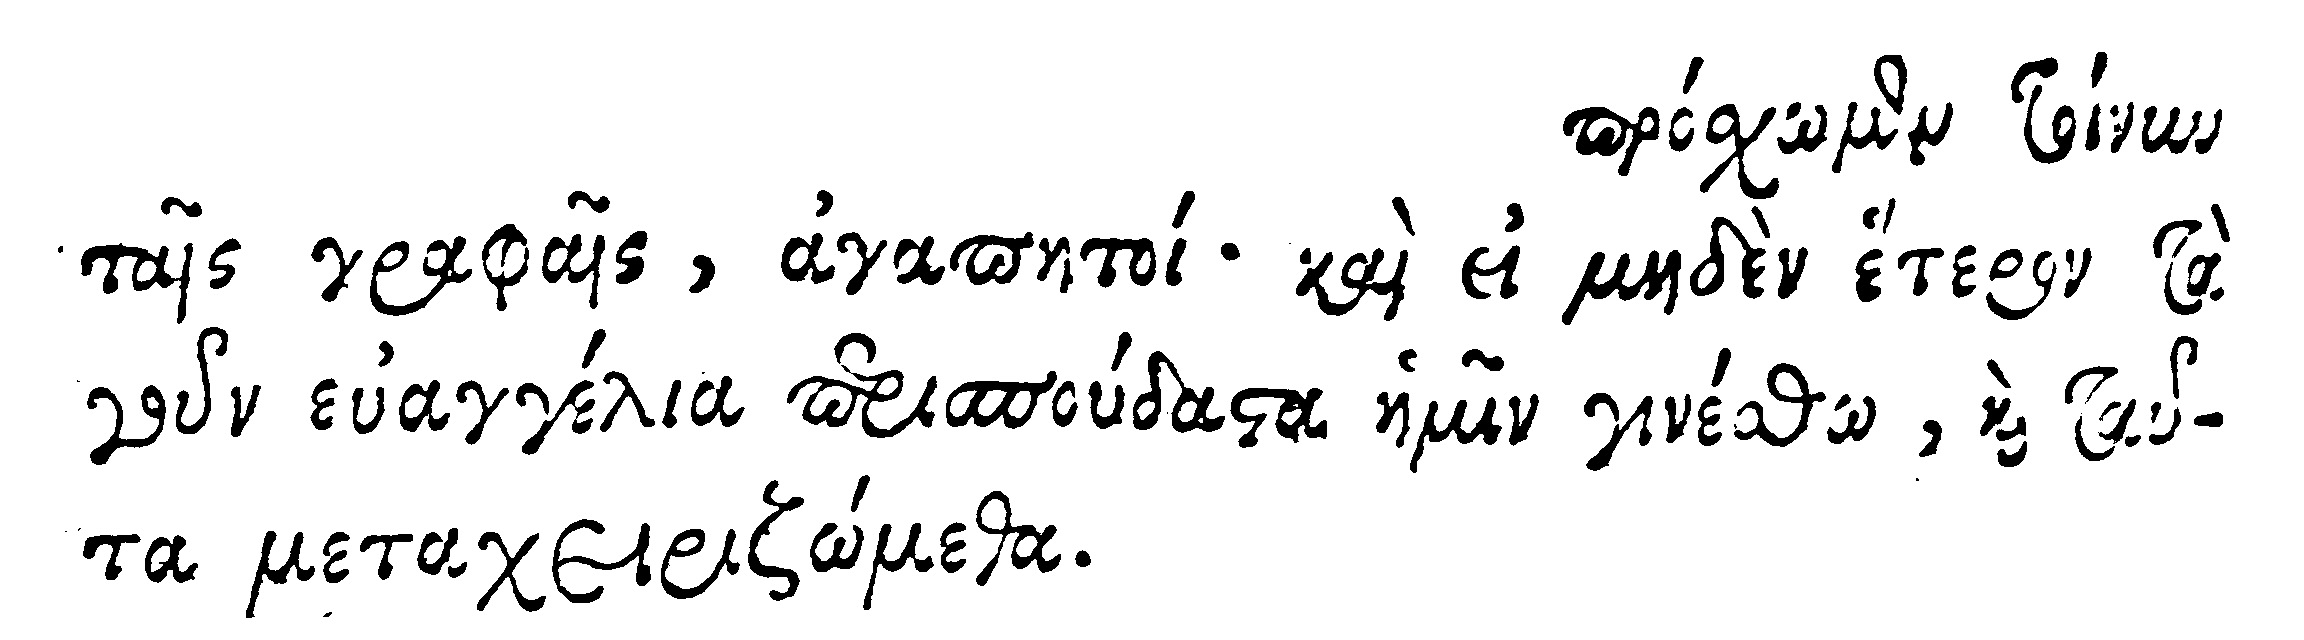 πρόσχωμεν τοίνυν
ταῖς γραφαῖς, ἀγαπητοί· καὶ εἰ μηδὲν ἕτερον τὰ
γοῦν εὐαγγέλια περισπούδαστα ἡμῖν γινέσθω, καὶ ταῦ-
τα μεταχειριζώμεθα.